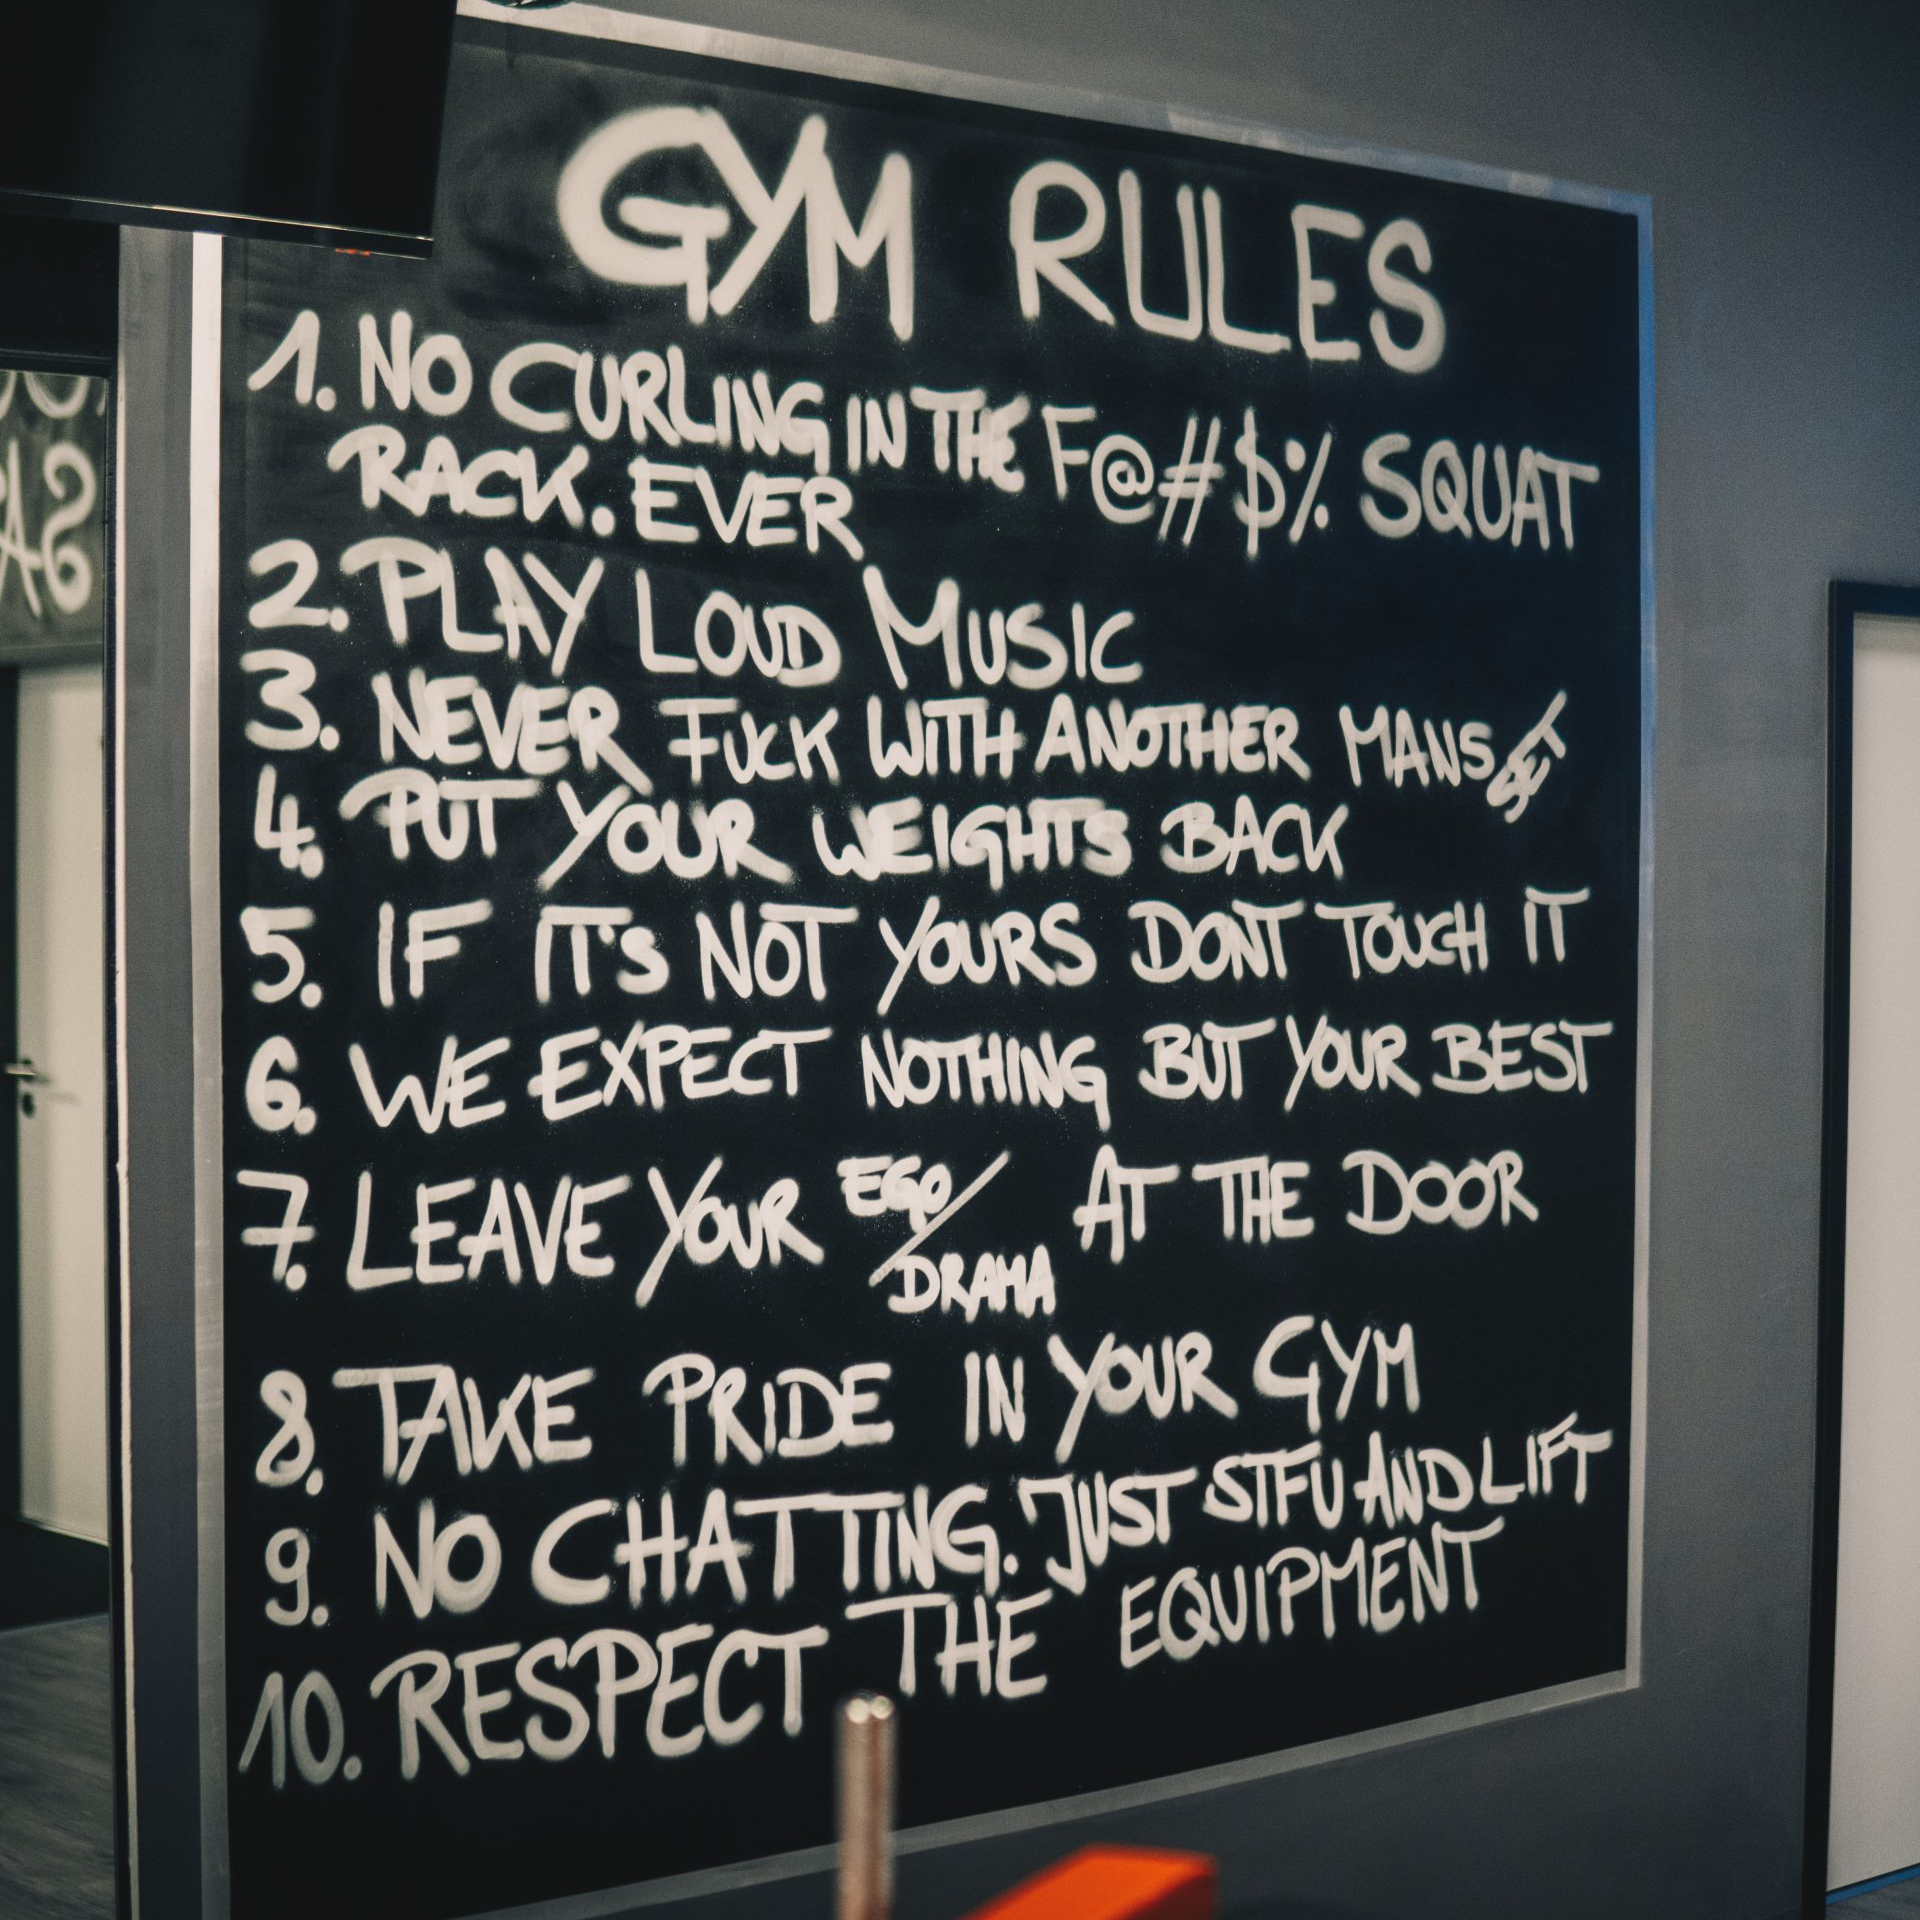 GYM RULES
1. NO CURLING IN THE F@#$% SQUAT
RACK. EVER
2. PLAY LOUD MUSIC
3. NEVER FUCK WITH ANOTHER MANS SET
4. PUT YOUR WEIGHTS BACK
5. IF IT'S NOT YOURS DONT TOUCH IT
6. WE EXPECT NOTHING BUT YOUR BEST
7. LEAVE YOUR EGO/DRAMA AT THE DOOR
8. TAKE PRIDE IN YOUR GYM
9. NO CHATTING. JUST STFU AND LIFT
10. RESPECT THE EQUIPMENT